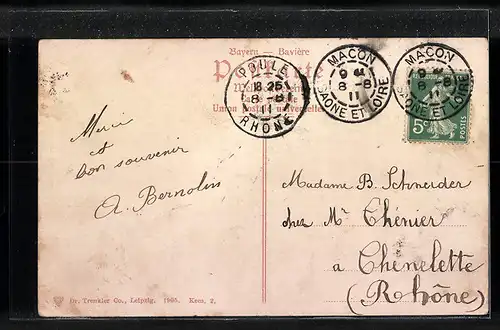 Bayern – Bavière
Postkarte
Union postale universelle
POULE
18 25
8 - 8
11
RHÔNE
MACON
8 - 8
11
SAONE ET LOIRE
MACON
SAONE ET LOIRE
5c
POSTES
Merci
et
bon souvenir
A. Bernolin
Madame B. Schneider
chez Mr Thénier
a Chenelette
(Rhône)
Dr. Trenkler Co., Leipzig. 1905. Kess. 2.